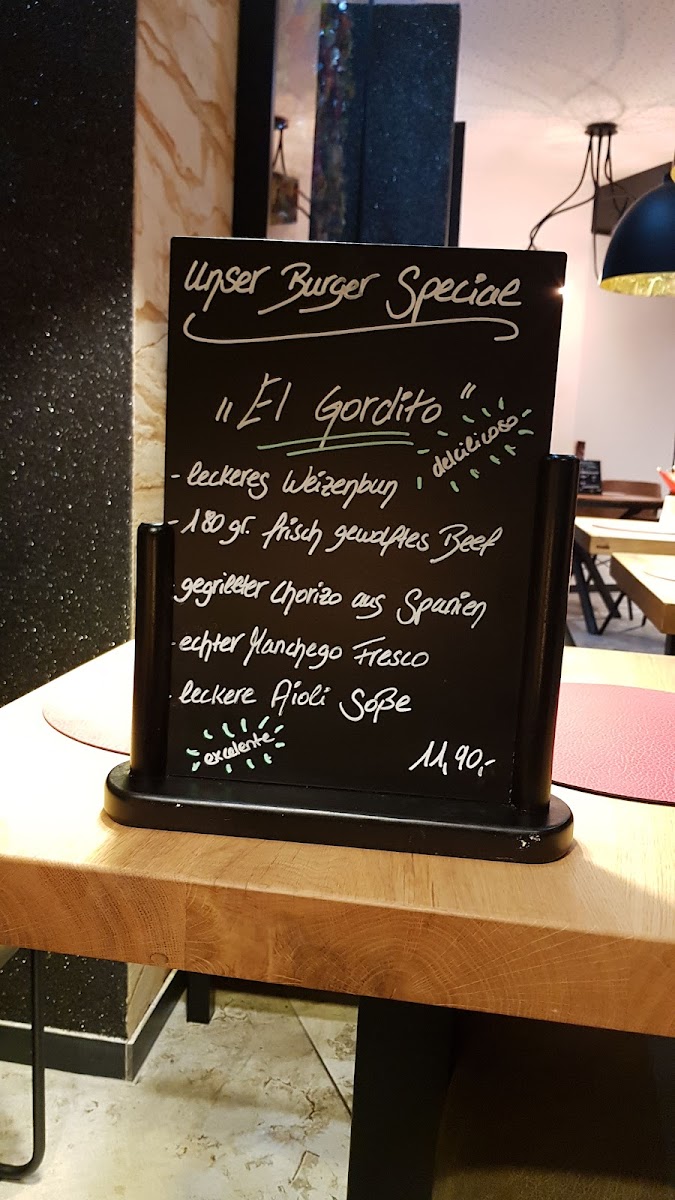 Unser Burger Special
„El Gordito"
delcilicoso
- leckeres Weizenbun
- 180 gr. frisch gewolftes Beef
- gegrillter Chorizo aus Spanien
- echter Manchego Fresco
- leckere Aioli Soße
excelente
11,90,-